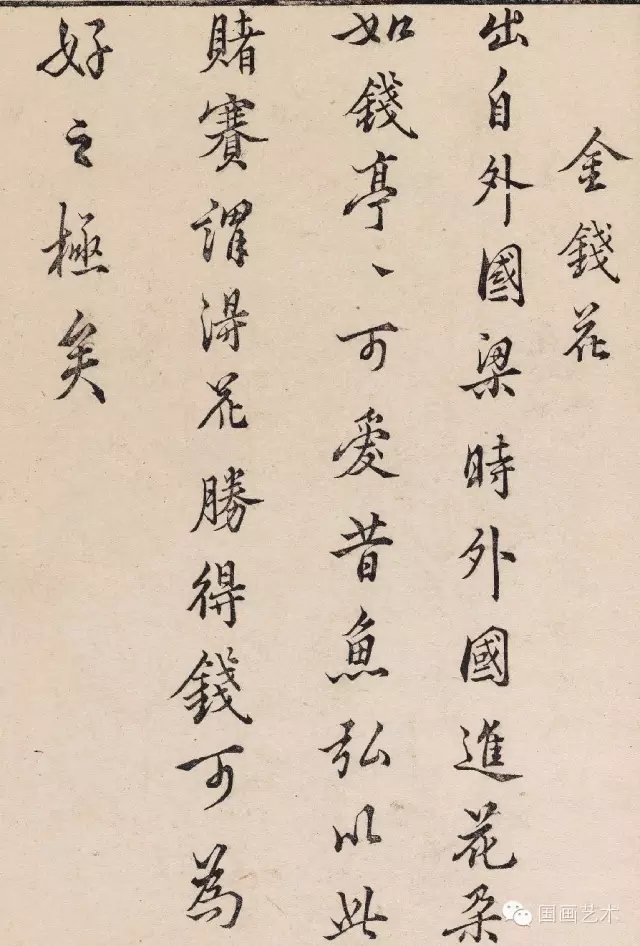 金錢花
出自外國梁時外國進花朵
如錢亭丶可愛昔魚弘以此
賭賽謂淂花勝得錢可為
好之極矣
国画艺术